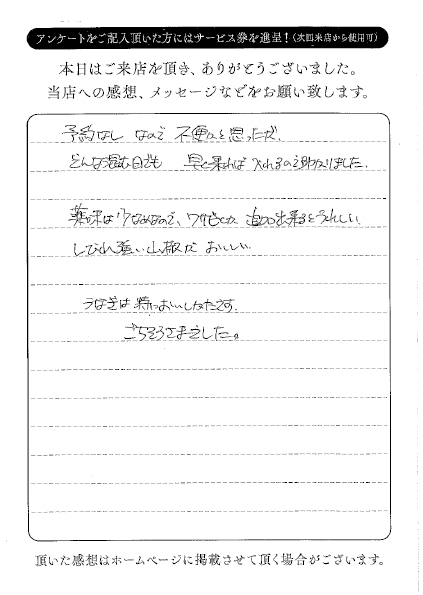 アンケートをご記入頂いた方にはサービス券を進呈！（次回来店から使用可）
本日はご来店を頂き、ありがとうございました。
当店への感想、メッセージなどをお願い致します。
予約なし なので 不便かと思ったが、
どんな混む日でも 早く来れば 入れるので助かりました。
薬味は少なめなので、ワサビとか 追加出来るとうれしい
しびれ強い山椒が おいしい
うなぎは おいしかったです。
ごちそうさまでした。
頂いた感想はホームページに掲載させて頂く場合がございます。